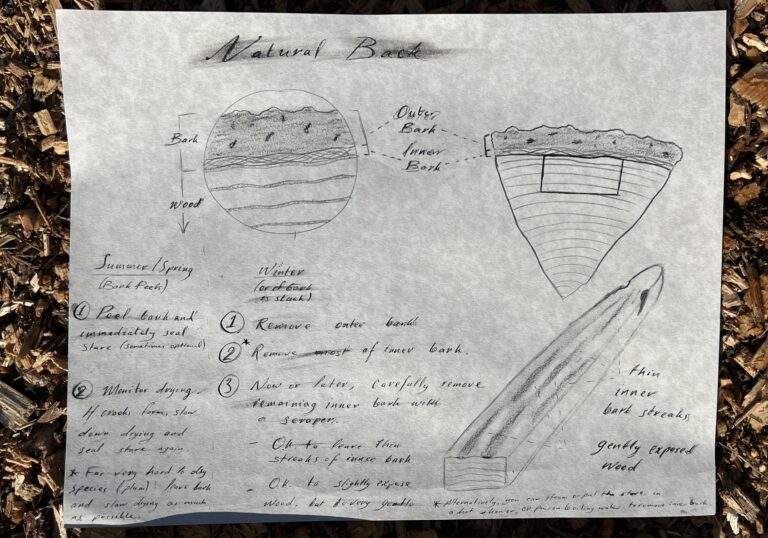 Natural Back
Outer
Bark
Inner
Bark
Bark
Wood
Summer/Spring
(Bark Peels)
① Peel bark and
immediately seal
stave (sometimes optional)
② Monitor drying.
If cracks form, slow
down drying and
seal stave again
* For very hard to dry
species (plum) leave bark
and slow drying as much
as possible.
Winter
(or if bark
is stuck)
① Remove outer bark.
②* Remove most of inner bark.
③ Now or later, carefully remove
remaining inner bark with
a scraper.
- Ok to leave thin
streaks of inner bark
- OK to slightly expose
wood, but very gently
thin
inner
bark streaks
gently exposed
wood
* Alternatively, you can steam or put the stave in
a hot shower, or pour boiling water to remove inner bark